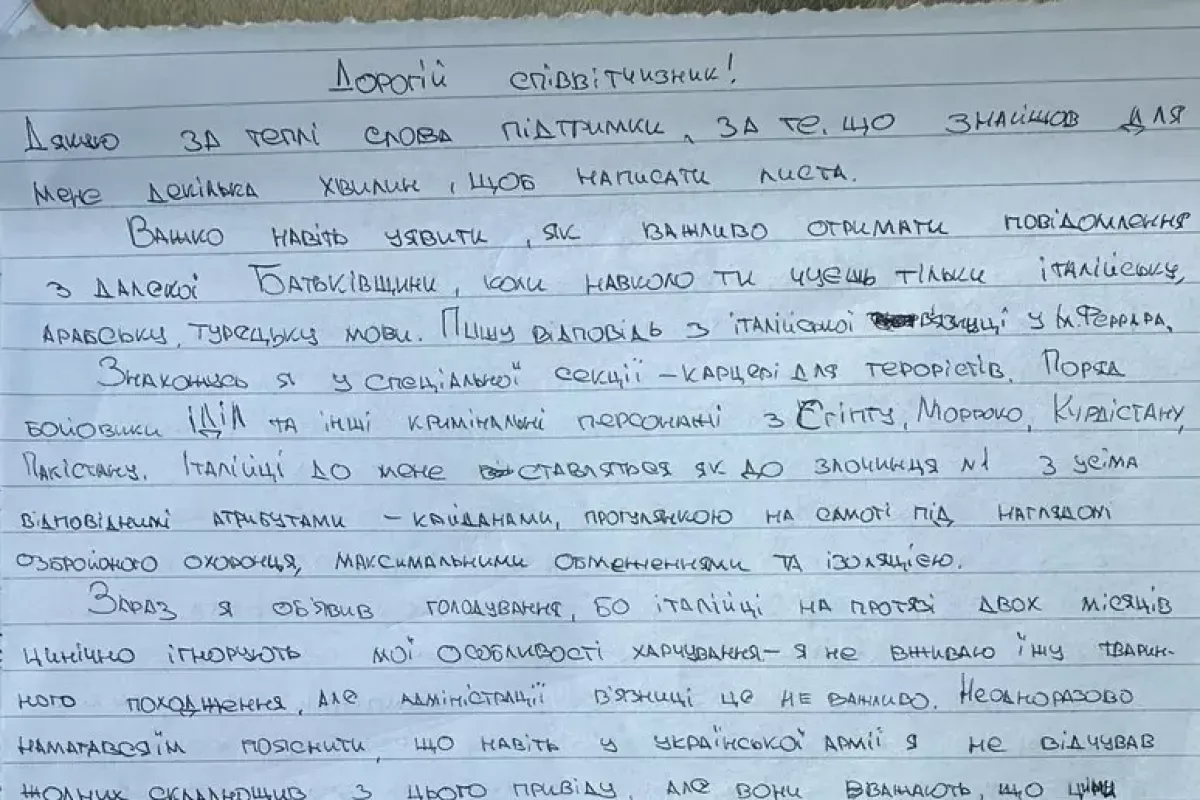 Дорогій співвітчизник!
Дякую за теплі слова підтримки, за те, що знайшов для
мене декілька хвилин, щоб написати листа.
Важко навіть уявити, як важливо отримати повідомлення
з далекої Батьківщини, коли навколо ти чуєш тільки італійську,
арабську, турецьку мови. Пишу відповідь з італійської вязниці у м. Феррара.
Знахожусь я у спеціальної секції – карцері для терорістів. Поряд
бойовики ІДІЛ та інші кримінальні персонажі з Єгіпту, Морроко, Курдістану,
Пакістану. Італійці до мене ставляться як до злочинця №1 з усіма
відповіднимі атрибутами – кайданами, прогулянкою на самоті під наглядом
озбройоного охоронця, максимальними обмеженнями та ізоляцією.
Зараз я об'явив голодування, бо італійці на протязі двох місяців
цинічно ігнорують мої особливості харчування – я не вживаю їжу тварин-
ного походження, але адміністрації в'язниці це не важливо. Неодноразово
намагався їм пояснити, що навіть у української армії я не відчував
жодних складнощив з цього приводу, але вони вважають, що